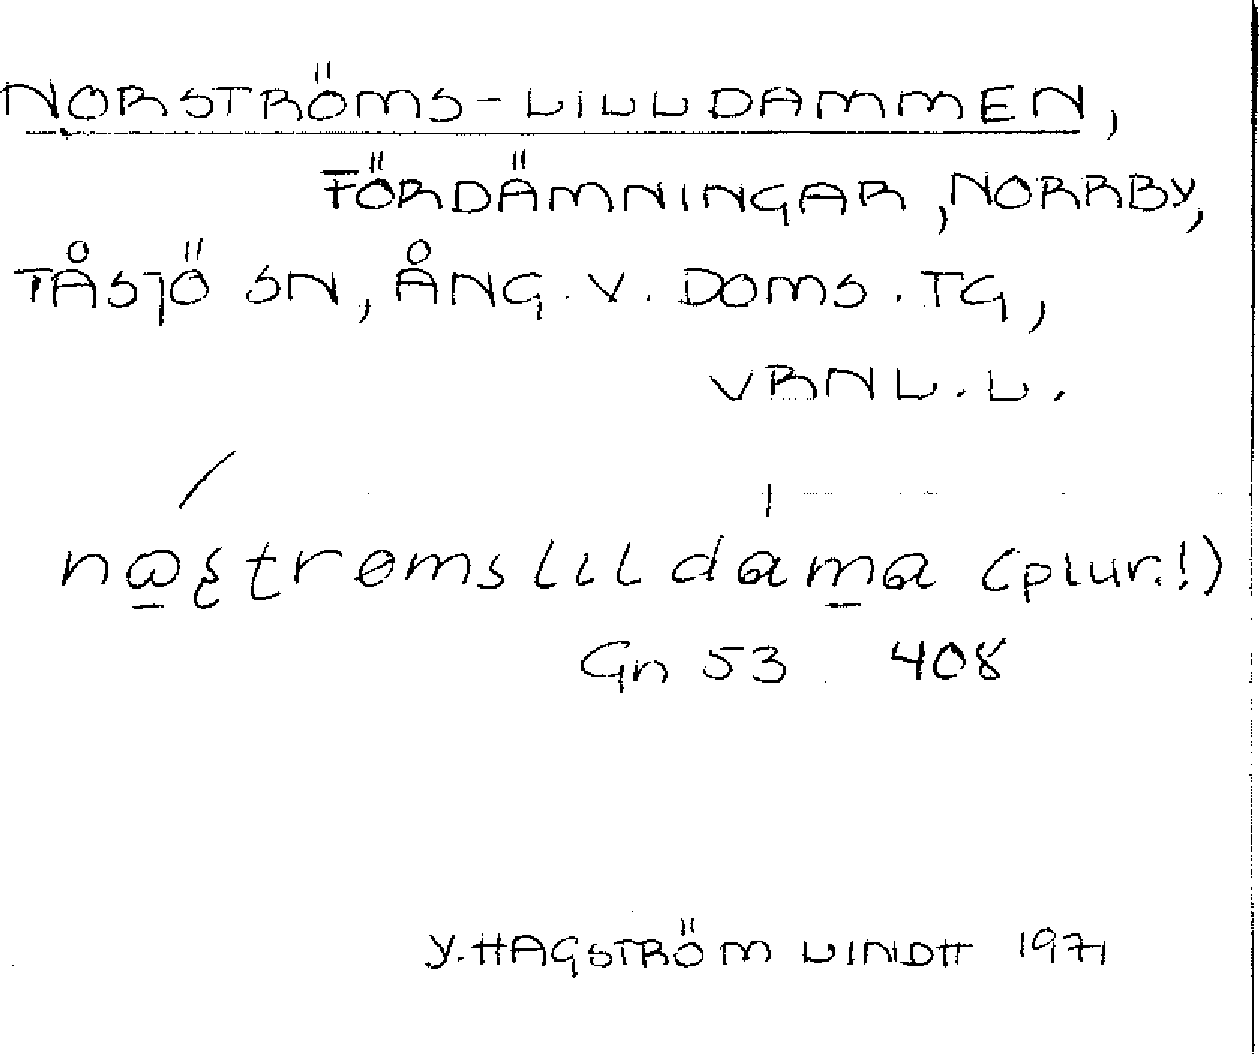 NORSTRÖMS-LILLDAMMEN,
FÖRDÄMNINGAR, NORRBY,
TÅSJÖ SN, ÅNG. V. DOMS. TG,
VRNL. L.
nɷʂtrømslıldama (plur.!)
Gn 53 408
Y. HAGSTRÖM LINDH 1971